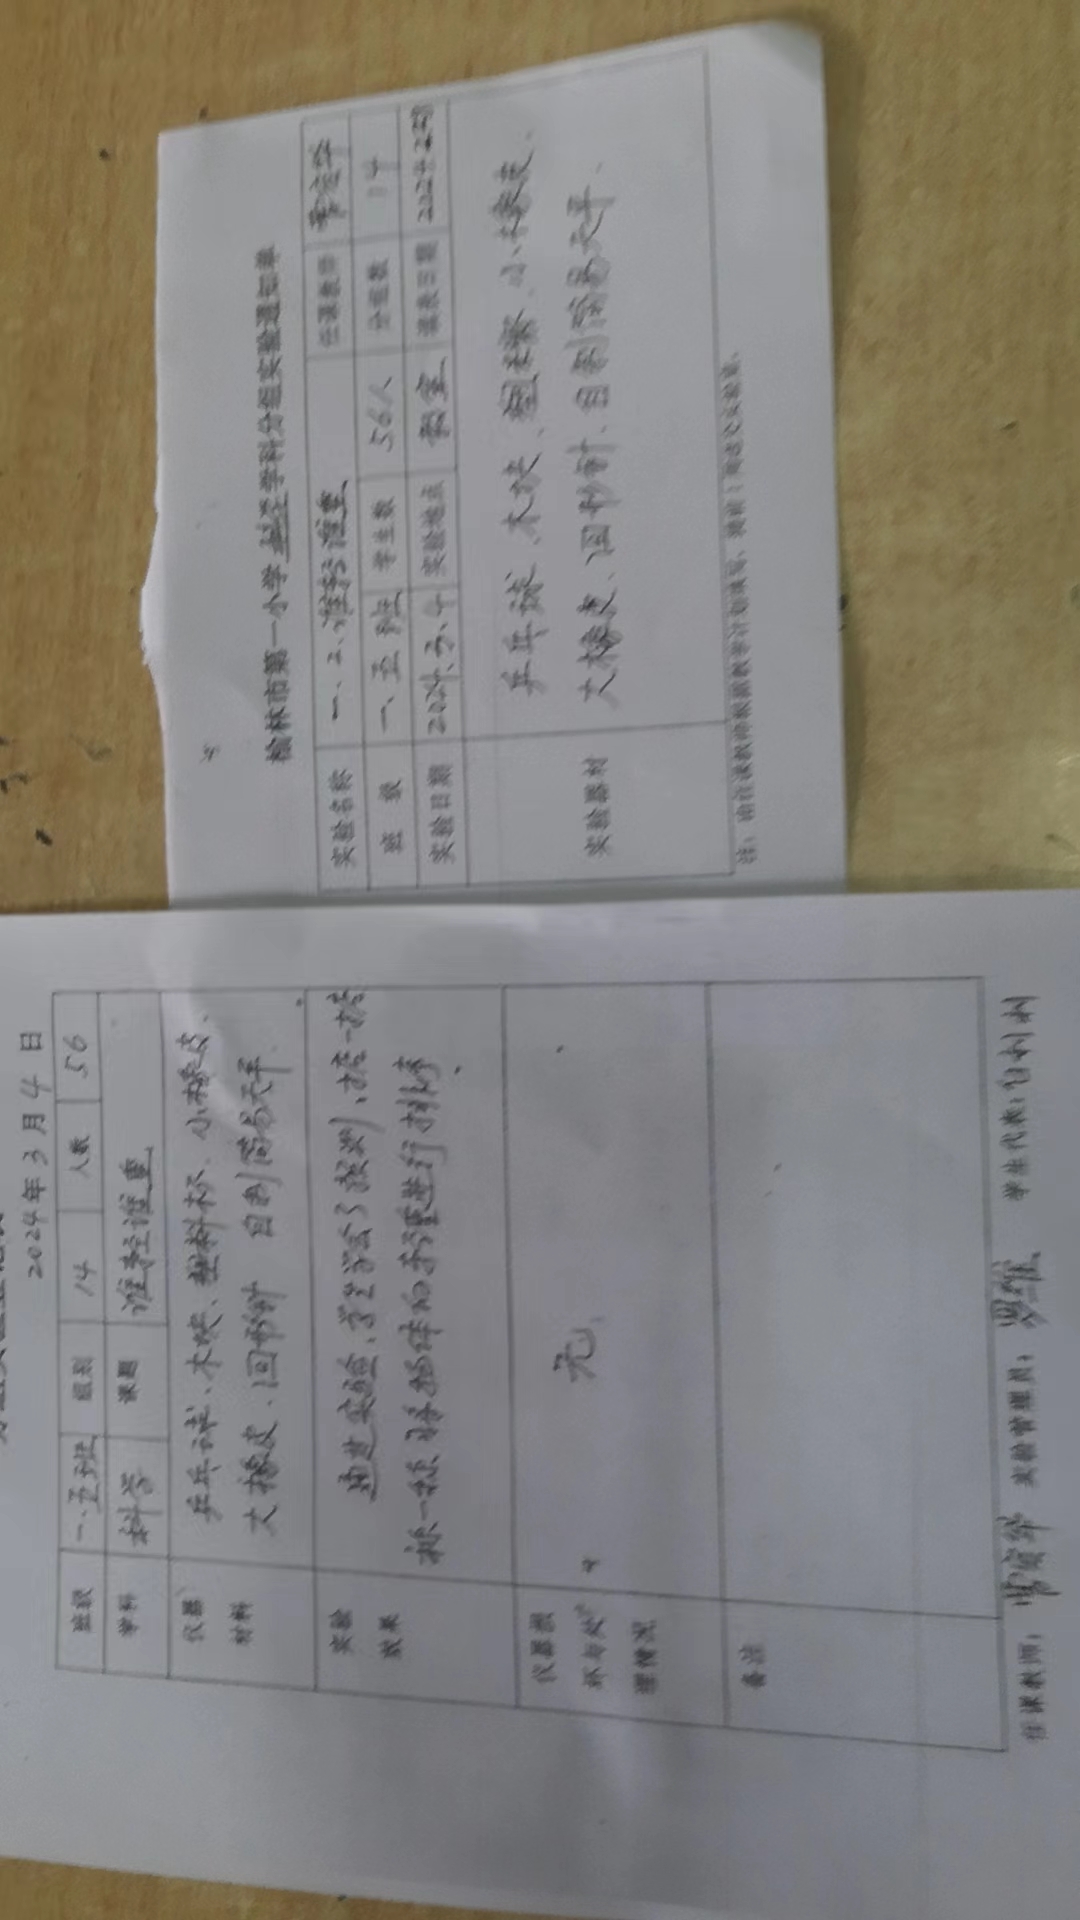 2024年3月4日
班级 一、五班 组别 14 人数 56
学科 科学 课题 谁轻谁重
仪器材料 乒乓球、木块、塑料杯、小橡皮、
大橡皮、回形针 自制简易天平.
实验效果 通过实验,学生学会了预测、掂一掂
称一称 对物体的轻重进行排序.
仪器损坏与处理情况 无
备注
任课教师: 实验管理员: 学生代表:
榆林市第一小学科学学科分组实验通知单
实验名称 一、2、谁轻谁重 任课教师
班级 一、五班 学生数 56人 分组数 14
实验日期 2024.3.4 实验地点 教室 填表日期
实验器材 乒乓球、木块、塑料杯、小橡皮、
大橡皮、回形针、自制简易天平、
注:由任课教师根据教学计划填写,